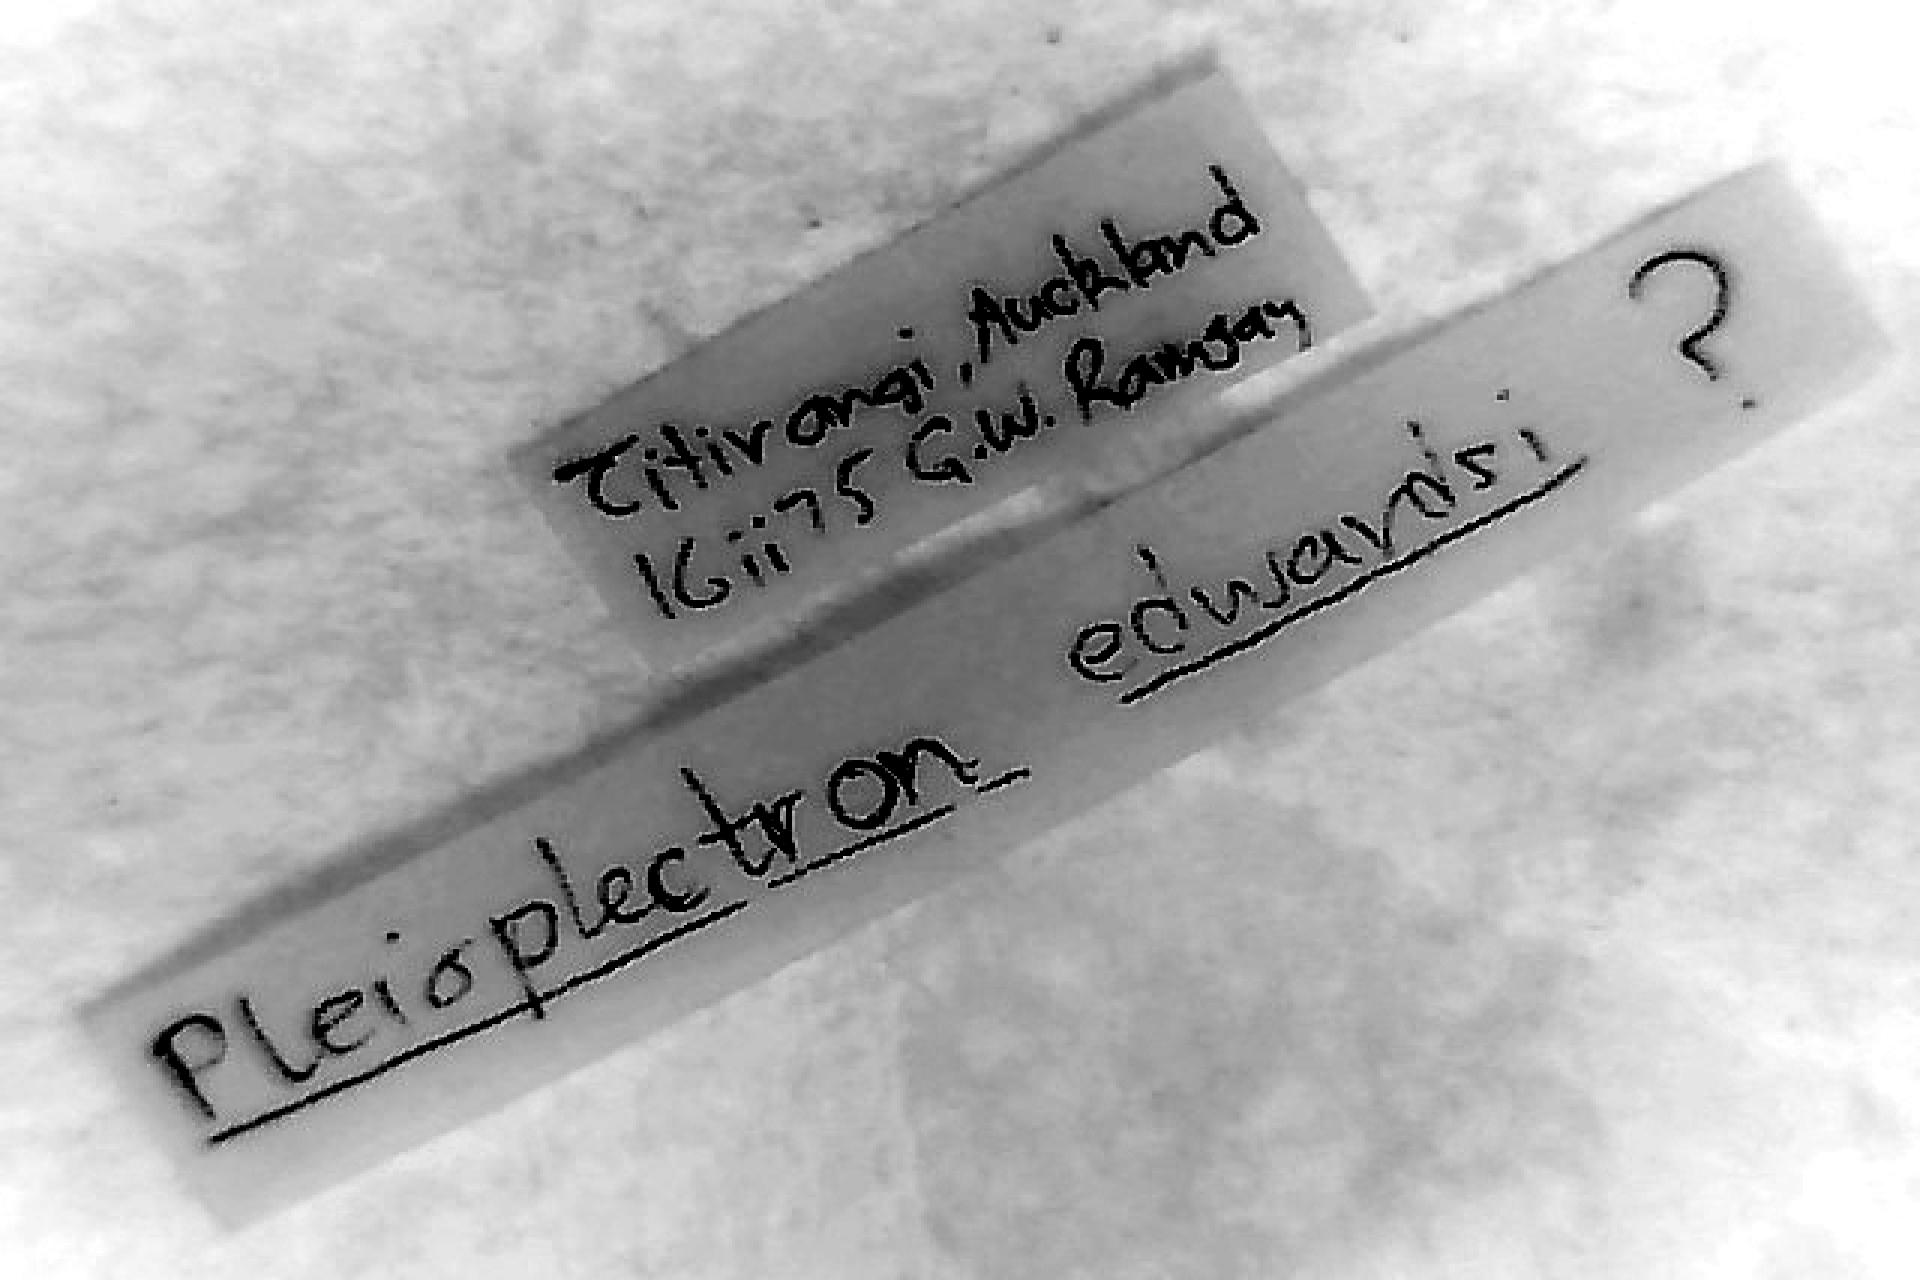 Titirangi, Auckland
16 ii 75 G.W. Ramsay
Pleioplectron edwardsi ?